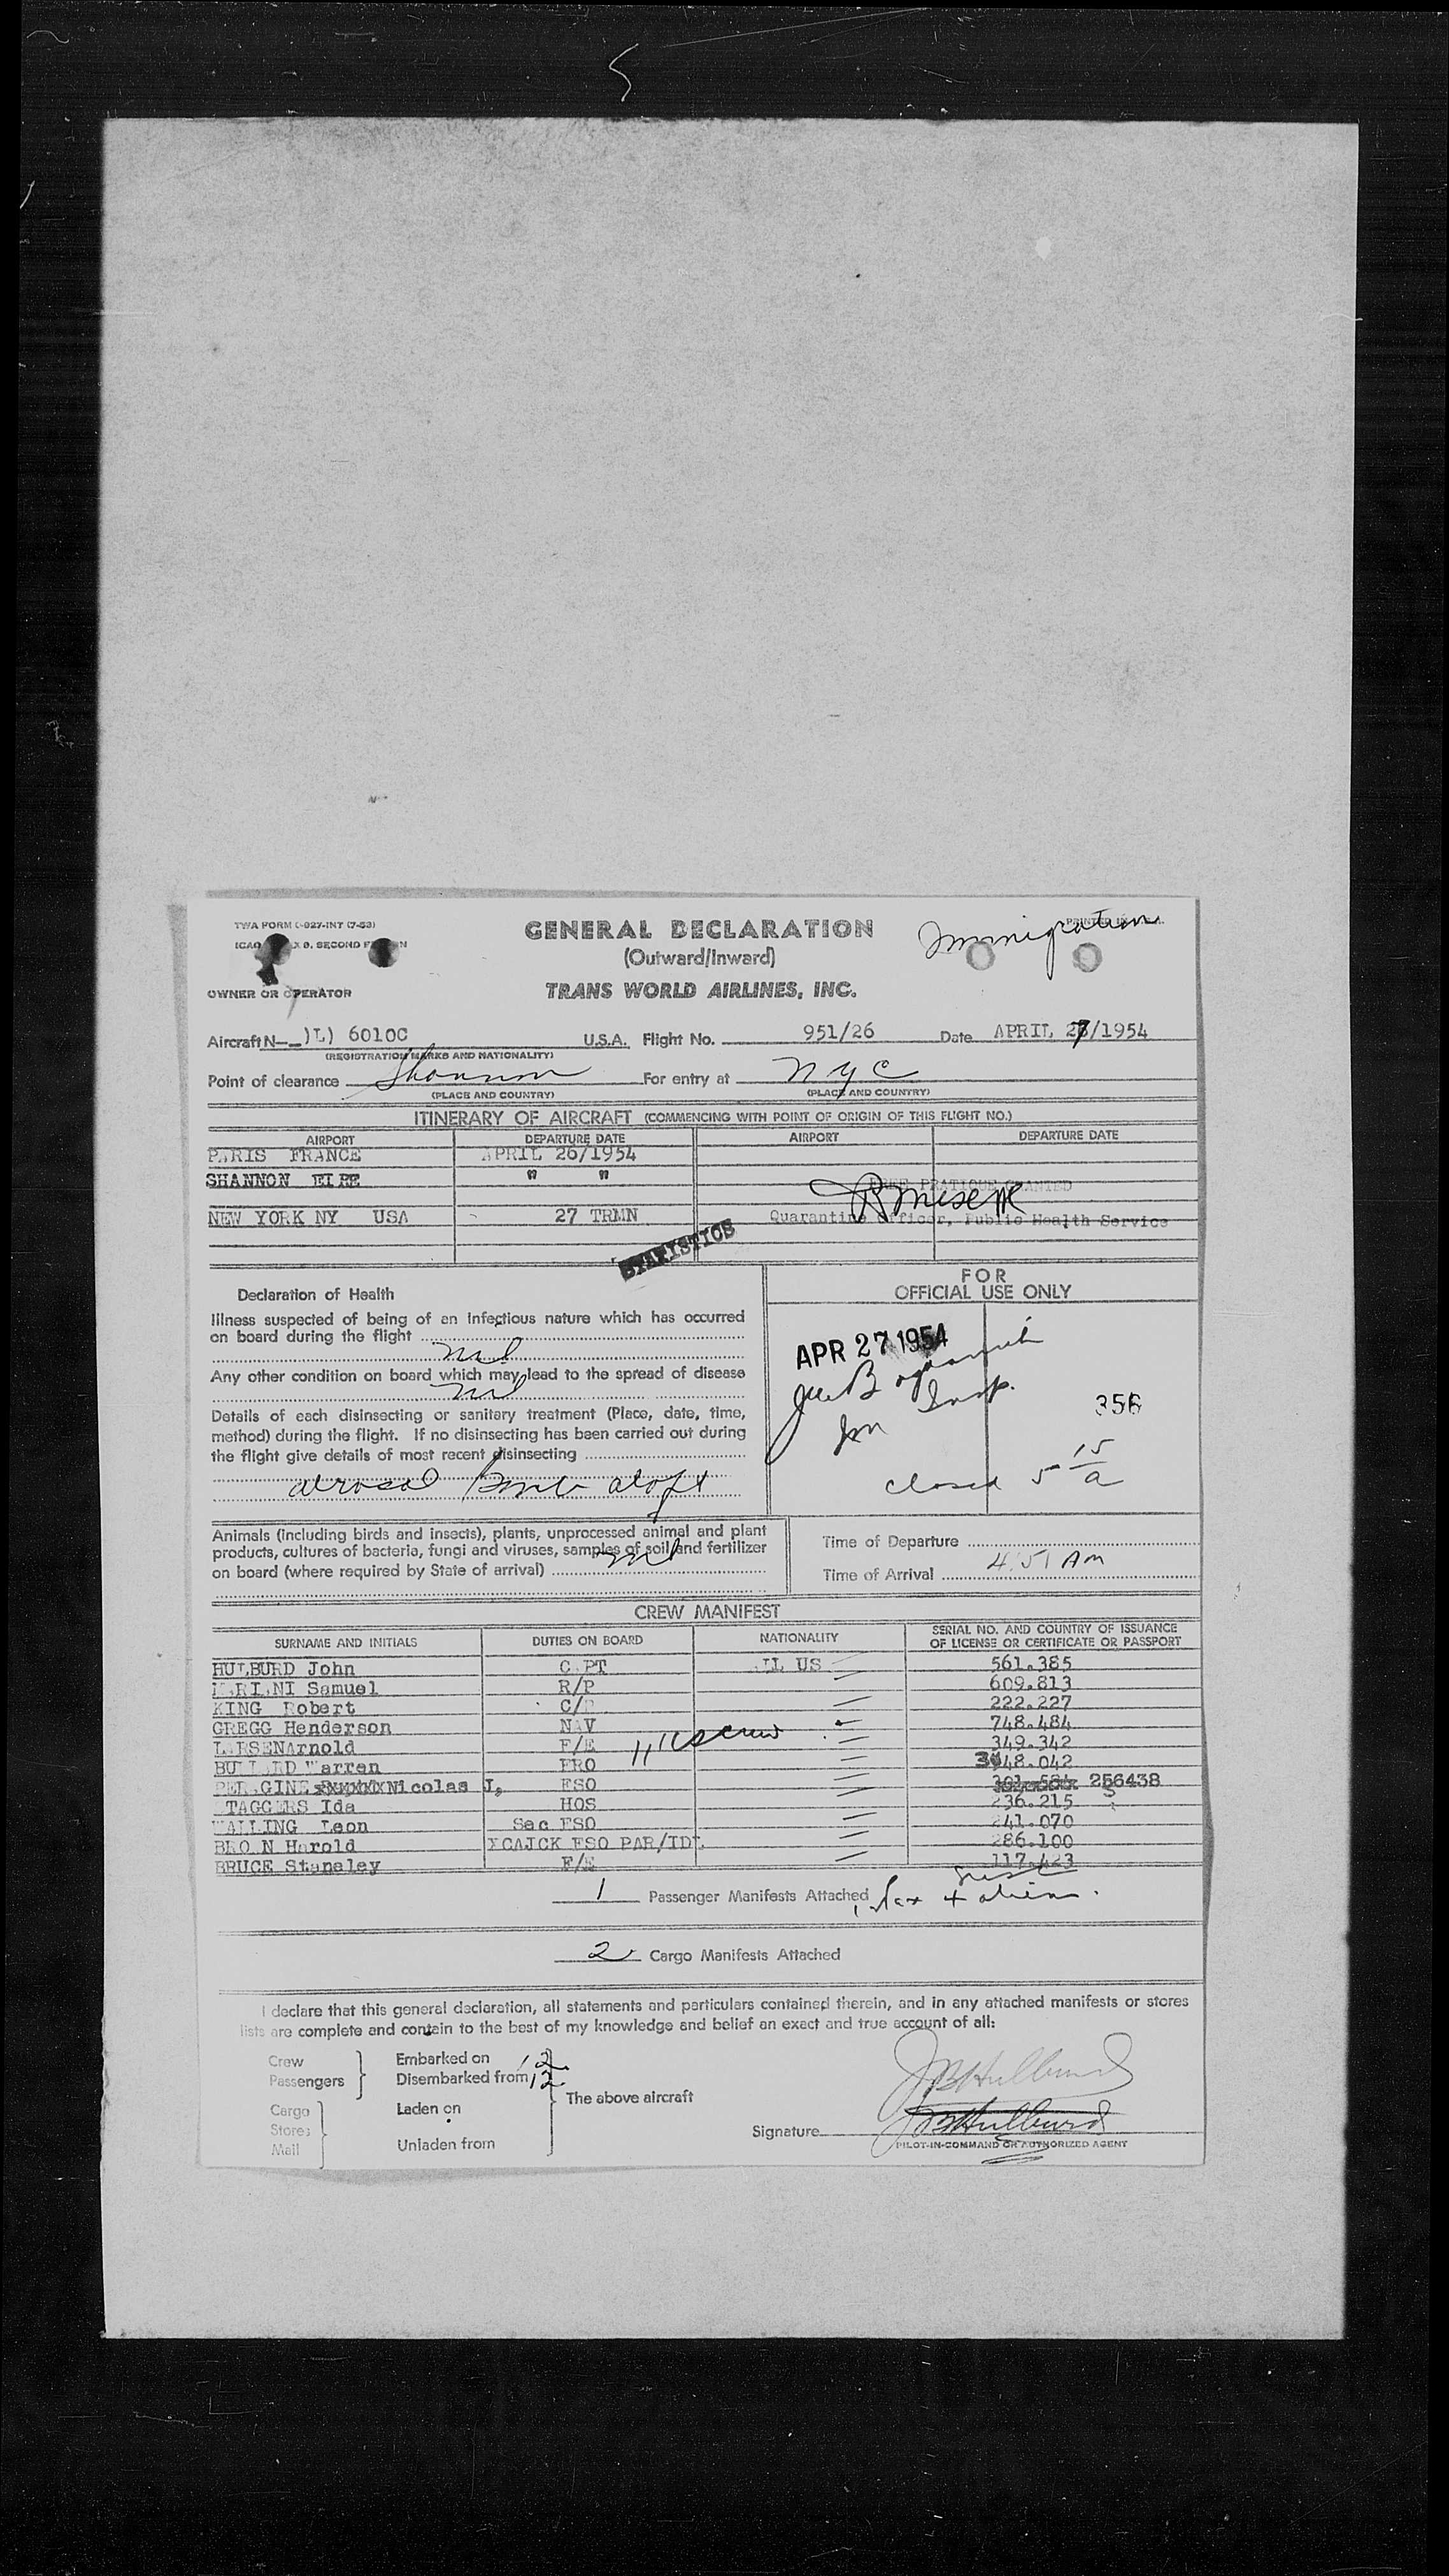 TWA FORM
GENERAL DECLARATION
Immigration
SECOND
(Outward/Inward)
OWNER OR OPERATOR
TRANS WORLD AIRLINES, INC.
Aircraft N— )L) 6010C U.S.A. Flight No. 951/26 Date APRIL 27/1954
(REGISTRATION MARKS AND NATIONALITY)
Point of clearance Shannon For entry at NYC
(PLACE AND COUNTRY) (PLACE AND COUNTRY)
ITINERARY OF AIRCRAFT (COMMENCING WITH POINT OF ORIGIN OF THIS FLIGHT NO.)
AIRPORT DEPARTURE DATE AIRPORT DEPARTURE DATE
PARIS FRANCE APRIL 26/1954
SHANNON EIRE " "
FREE PRATIQUE GRANTED
NEW YORK NY USA 27 TRMN
Quarantine Officer, Public Health Service
STATISTICS
Declaration of Health
FOR
OFFICIAL USE ONLY
Illness suspected of being of an infectious nature which has occurred
on board during the flight
nil
APR 27 1954
Any other condition on board which may lead to the spread of disease
nil
Insp.
Details of each disinsecting or sanitary treatment (Place, date, time,
method) during the flight. If no disinsecting has been carried out during
the flight give details of most recent disinsecting
356
Im
aerosol Bomb aloft
closed 5 15/a
Animals (including birds and insects), plants, unprocessed animal and plant
products, cultures of bacteria, fungi and viruses, samples of soil and fertilizer
on board (where required by State of arrival) nil
Time of Departure
Time of Arrival 4:51 Am
CREW MANIFEST
SURNAME AND INITIALS DUTIES ON BOARD NATIONALITY SERIAL NO. AND COUNTRY OF ISSUANCE
OF LICENSE OR CERTIFICATE OR PASSPORT
HULBURD John CAPT ALL US 561.385
Samuel R/P 609.813
KING Robert C/P 222.227
GREGG Henderson NAV 748.484
LARSEN Arnold F/E 349.342
11 US crew
BULLARD Warren PRO 348.042
Nicolas J, FSO 256438
STAGGERS Ida HOS 236.215
WALLING Leon Sec FSO 241.070
BROWN Harold XCAJCK FSO PAR/IDL 286.100
BRUCE Staneley F/E 117.423
1 Passenger Manifests Attached
2 Cargo Manifests Attached
I declare that this general declaration, all statements and particulars contained therein, and in any attached manifests or stores
lists are complete and contain to the best of my knowledge and belief an exact and true account of all:
Crew
Passengers
Embarked on 12
Disembarked from 12
The above aircraft
JBHulburd
Cargo
Stores
Mail
Laden on
Unladen from
Signature JBHulburd
PILOT-IN-COMMAND OR AUTHORIZED AGENT